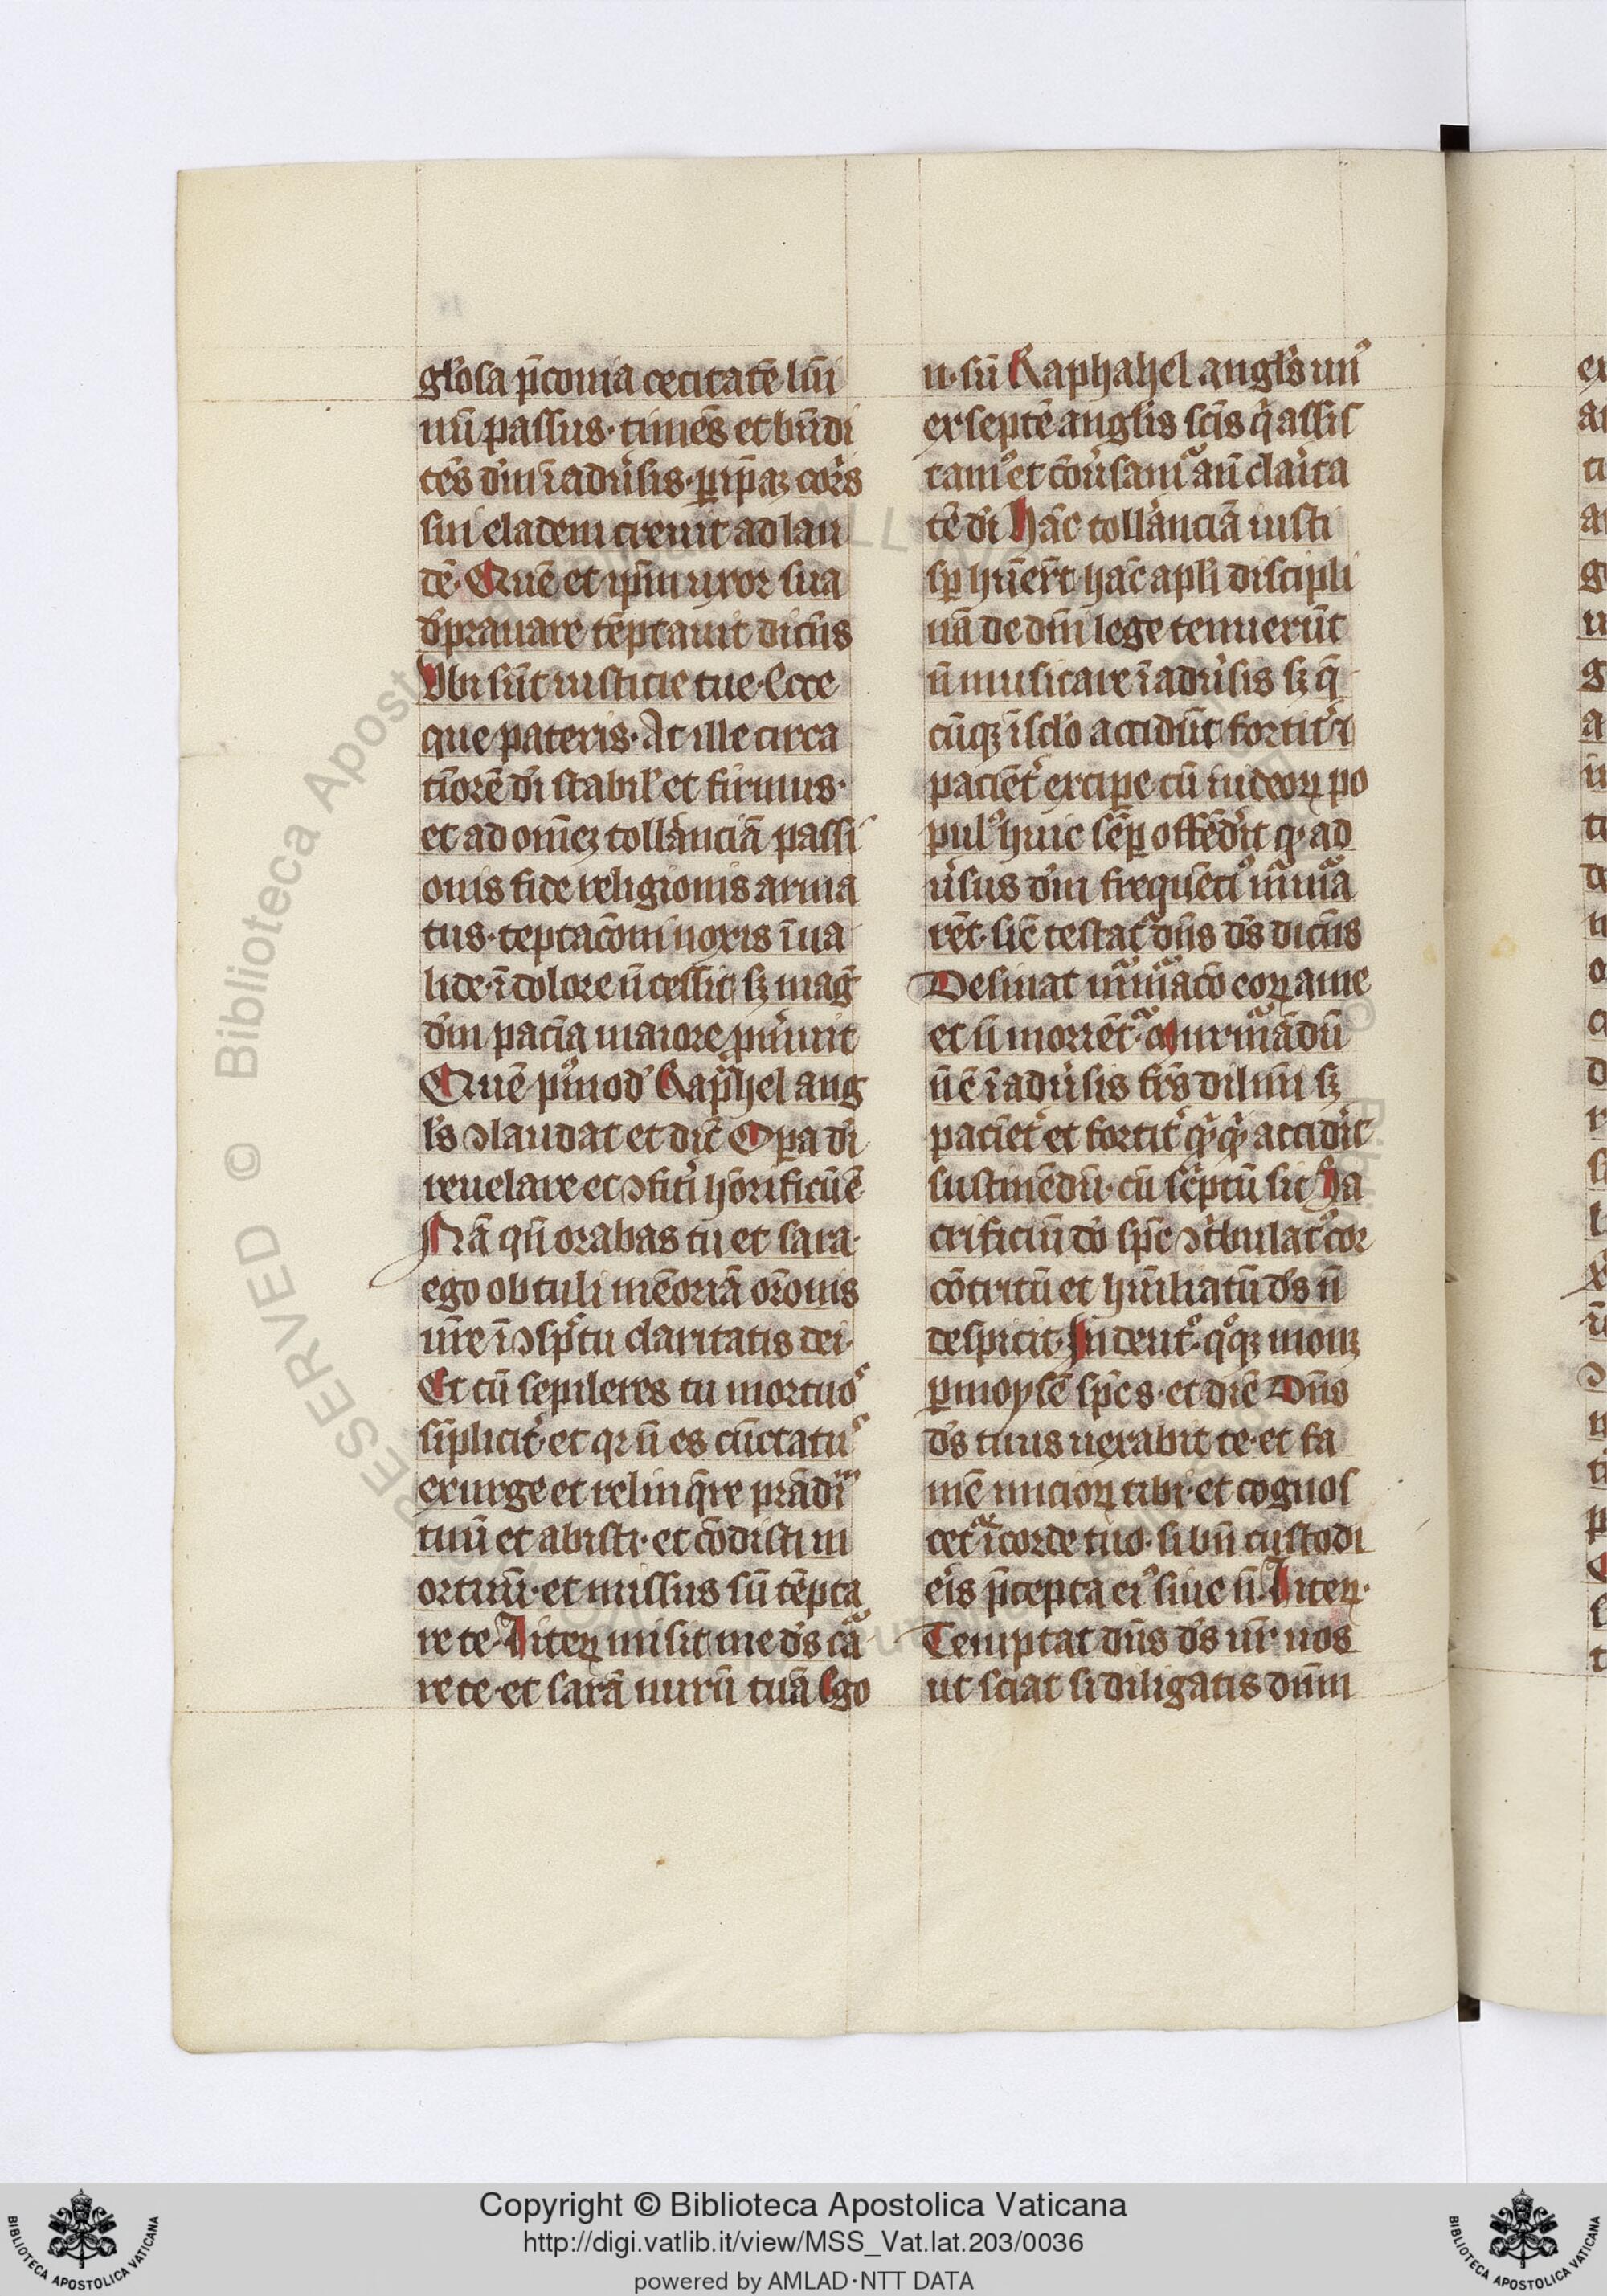 gl'osa p̄conia cecitatē lūi
nū passus· timēs et bn̄di
cēs dm̄ ī adu'sis· ꝑ ip̄aꝫ cor'ꝑis
sui cladem creuit ad lau
dē· Quē et ip̄m uxor sua
d'prauare tēptauit dicēs
Vbi sūt iusticie tue· Ecce
que pateris· At ille circa
tīorē di stabil' et firmus·
et ad om̄eꝫ toll'anciā passi
onis fide religionis arma
tus· teptac̄oni noxis īua
lide· ī dolore n̄ cessit sꝫ maḡ
dm̄ paciā maiore ꝓm'uit
Quē pmod' Raphel ang
l's ↄlaudat et dic̄ Oꝑa di
reuelare et ↄfit'i hōrificū ē·
Nā qn̄ orabas tu et sara·
ego obtuli mēoriā or̄onis
ur̄e ī ↄsp̄tu claritatis dei·
Et cū sepileres tu mortuos
sīplicit'· et qr n̄ es cūctatus
exurge et relinq̄re prādiū
tuū et abisti· et cōdisti m
ortuū· et missus sū tēpta
re te· Iteꝝ misit me ds cura
re te· et sarā nurū tuā Ego
n· sū Raphahel angl's un'
ex septē anglis sc̄is q̄ assis
tam' et cōu'sam' an̄ clar'ita
tē di Hāc toll'anciā iusti
sꝑ hūer̄t hāc apl'i discipli
nā de dn̄i lege tenuerūt
n̄ musitare ī adu'sis sꝫ q̄
cūqꝫ ī sclo accidūt fortit' ⁊
paciēt' excipe cū iudeoꝝ po
pul' huic sēꝑ offēd'it q ad
u'sus dm̄ frequēci' murmura
rēt· sic̄ testat' dn̄s ds dicēs
Desinat murmurac̄o eoꝝ a me
et n̄ morrēt'· Murmurādū
n̄ ē ī adu'sis fr̄s dil'mi sꝫ
paciēt' et fortit' qqd accid'it
sustinēdū· cū sc'ptū sit Sa
crificiū do sp̄c ↄt'bulat' cor
cōtritū et hūiliatū ds n̄
despicit· In deut'· qoqꝫ moneꝫ
ꝑ moysē sp̄c s· et dic̄ Dn̄s
ds tuus uexabit te· et fa
mē iniciet tibi· et cognos
cet' ī corde tuo· si bn̄ custodi
eris p̄cepta ei' siue n̄· Iteꝝ·
Temptat dn̄s ds ur̄ uos
ut sciat si diligatis dnm
Copyright © Biblioteca Apostolica Vaticana
http://digi.vatlib.it/view/MSS_Vat.lat.203/0036
powered by AMLAD·NTT DATA